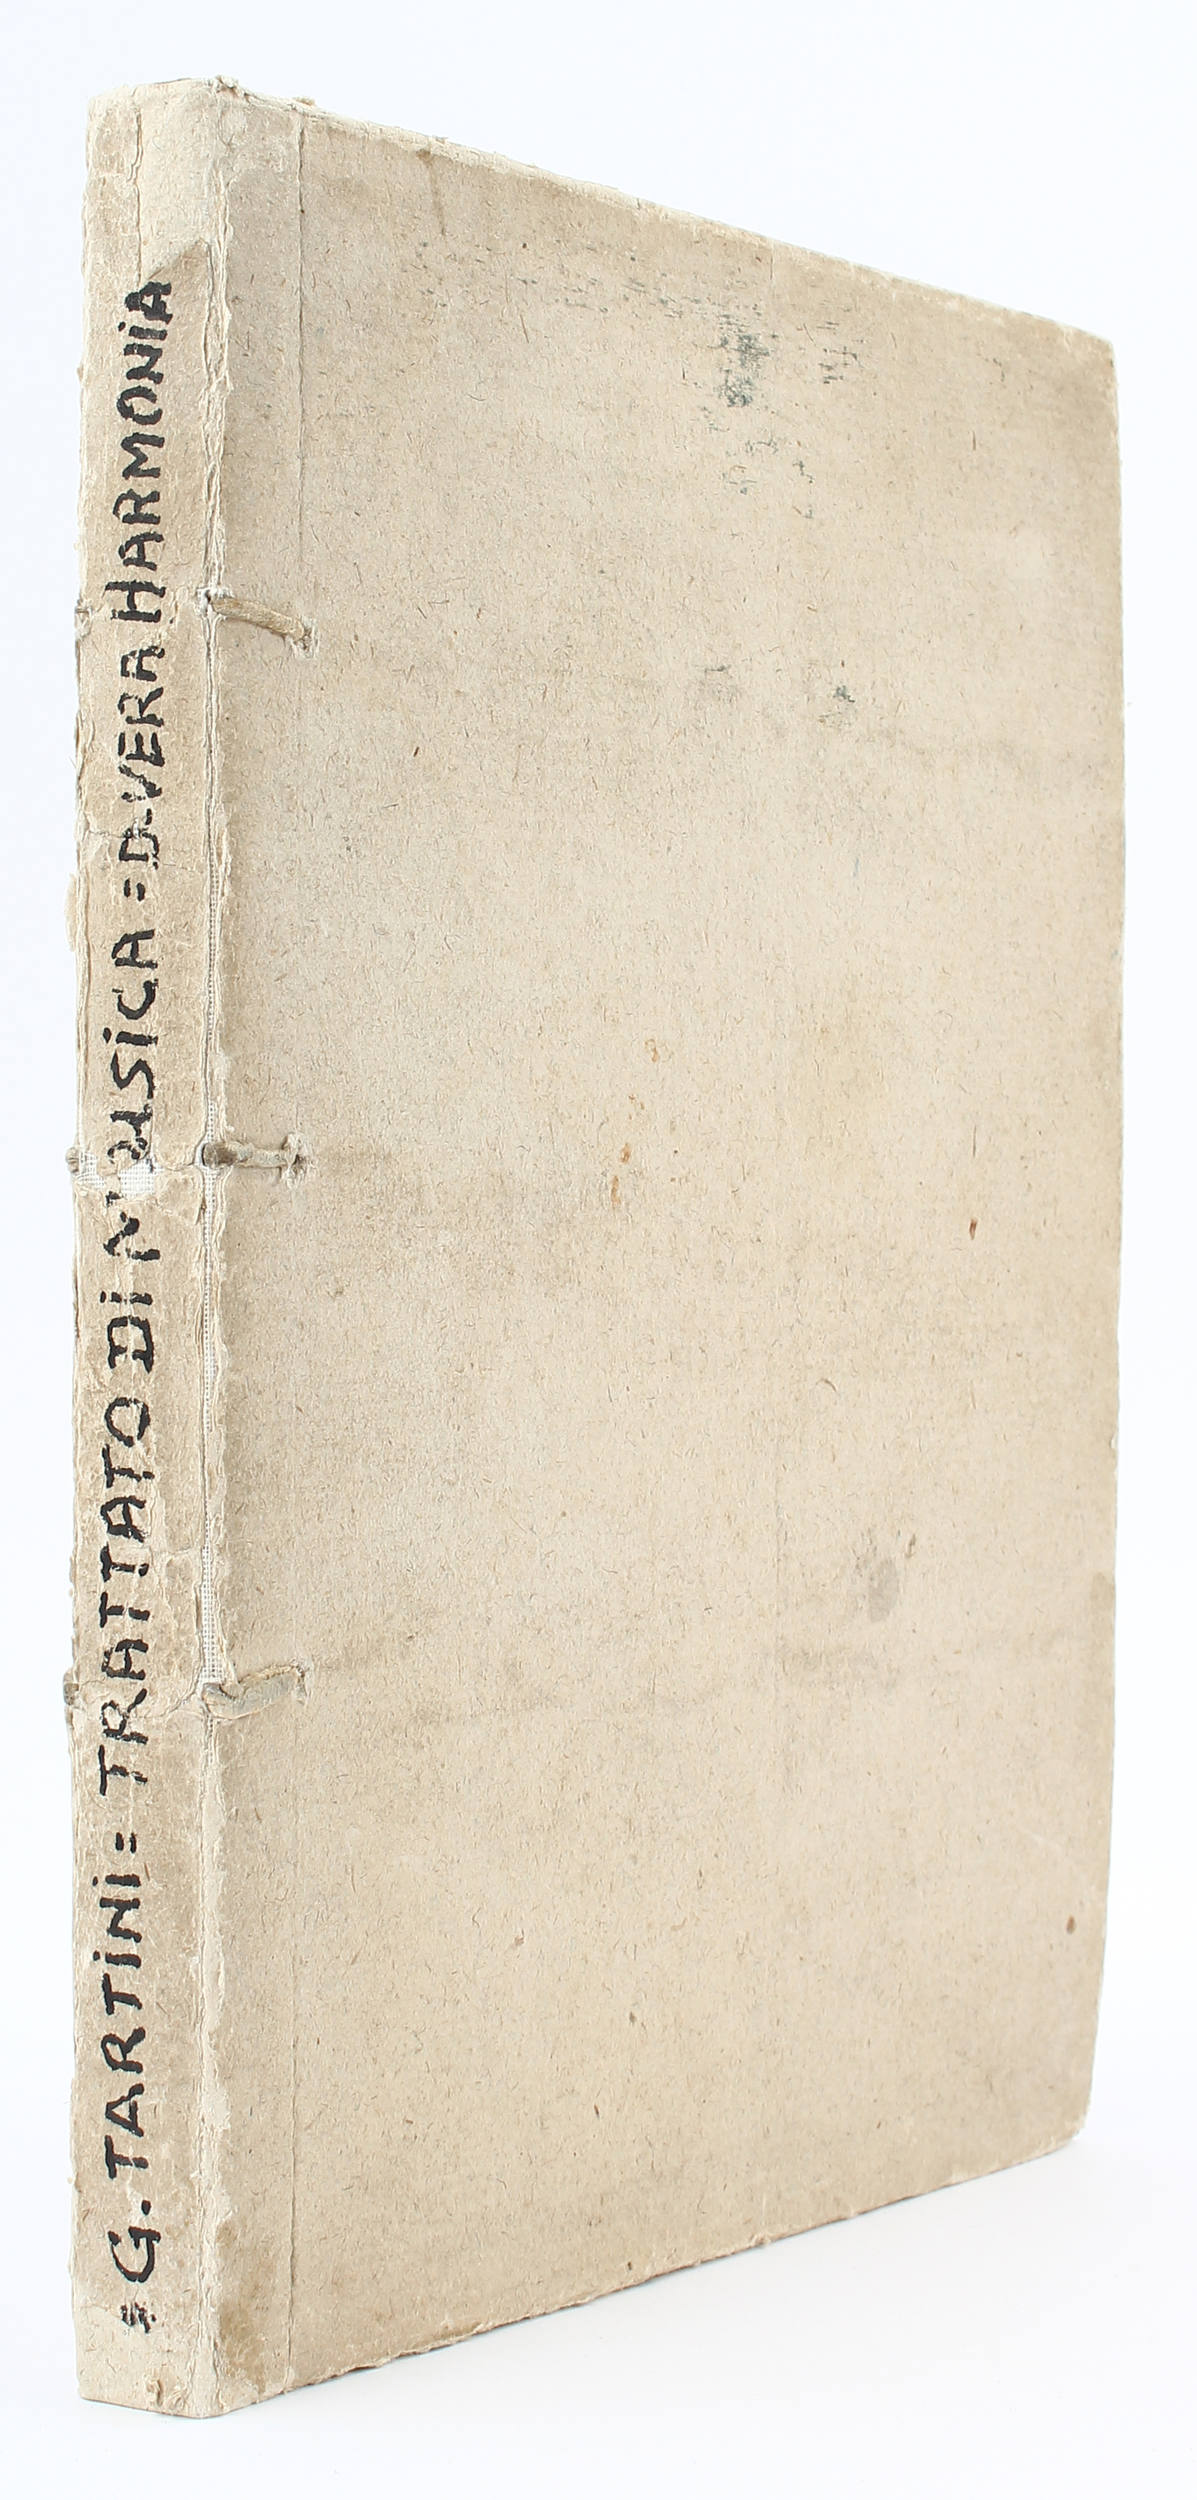 G. TARTINI = TRATTATO DI MUSICA = D. VERA HARMONIA